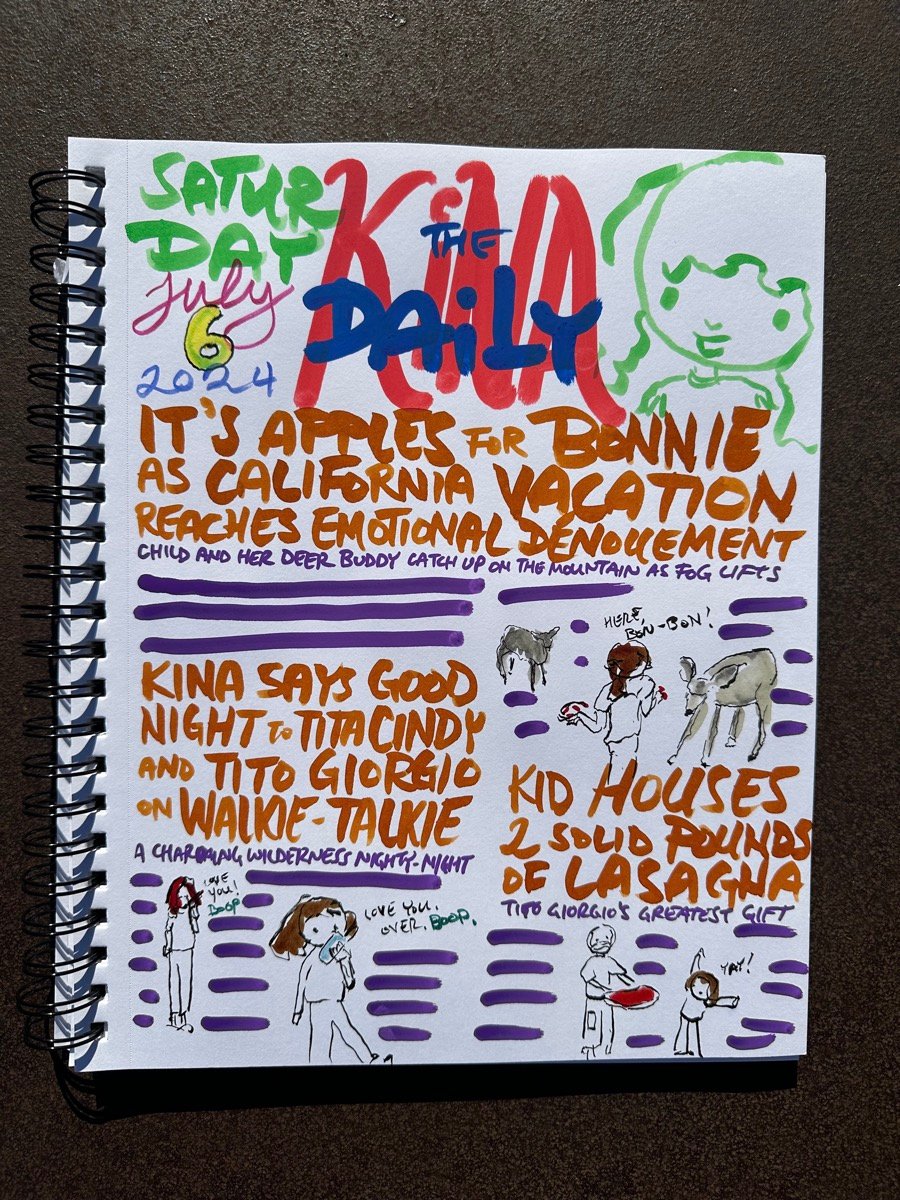 SATUR
DAY
July
6
2024
THE
KiNA
DAiLY
IT'S APPLES FOR BONNIE
AS CALIFORNIA VACATION
REACHES EMOTIONAL DÉNOUEMENT
CHILD AND HER DEER BUDDY CATCH UP ON THE MOUNTAIN AS FOG LIFTS
HERE,
BON-BON!
KINA SAYS GOOD
NIGHT to TITA CINDY
AND TITO GIORGIO
ON WALKIE-TALKIE
A CHARMING WILDERNESS NIGHTY-NIGHT
LOVE
YOU!
BOOP
LOVE YOU.
OVER. BOOP.
KID HOUSES
2 SOLID POUNDS
OF LASAGNA
TITO GIORGIO'S GREATEST GIFT
YAY!